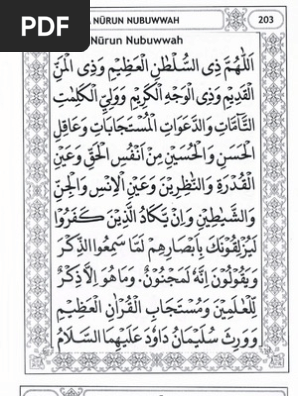 PDF
NŪRUN NUBUWWAH
203
Nūrun Nubuwwah
اَللّٰهُمَّ ذِى السُّلْطٰنِ الْعَظِيْمِ وَذِى الْمَنِّ
الْقَدِيْمِ وَذِى الْوَجْهِ الْكَرِيْمِ وَوَلِيِّ الْكَلِمٰتِ
التَّآمَّاتِ وَالدَّعَوَاتِ الْمُسْتَجَابَاتِ وَعَاقِلِ
الْحَسَنِ وَالْحُسَيْنِ مِنْ اَنْفُسِ الْحَقِّ وَعَيْنِ
الْقُدْرَةِ وَالنَّاظِرِيْنَ وَعَيْنِ الْاِنْسِ وَالْجِنِّ
وَالشَّيٰطِيْنِ وَاِنْ يَّكَادُ الَّذِيْنَ كَفَرُوْا
لَيُزْلِقُوْنَكَ بِاَبْصَارِهِمْ لَمَّا سَمِعُوا الذِّكْرَ
وَيَقُوْلُوْنَ اِنَّهٗ لَمَجْنُوْنٌ. وَمَا هُوَ اِلَّا ذِكْرٌ
لِّلْعٰلَمِيْنَ وَمُسْتَجَابِ الْقُرْاٰنِ الْعَظِيْمِ
وَوَرِثَ سُلَيْمَانُ دَاوٗدَ عَلَيْهِمَا السَّلَامُ